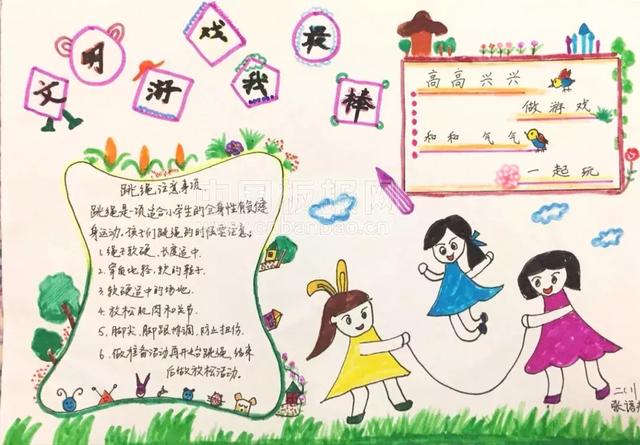 文明游戏我最棒
高高兴兴
做游戏
和和气气
一起玩
跳绳注意事项
跳绳是一项适合小学生的全身性有氧健
身运动,孩子们跳绳的时候要注意:
1.绳子软硬、长度适中.
2.穿质地轻、软的鞋子.
3.软硬适中的场地.
4.放松肌肉和关节.
5.脚尖、脚跟协调,防止扭伤.
6.做准备活动再开始跳绳,结束
后做放松活动.
中国板报网
二(1)